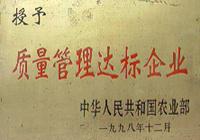 授予
质量管理达标企业
中华人民共和国农业部
一九九八年十二月